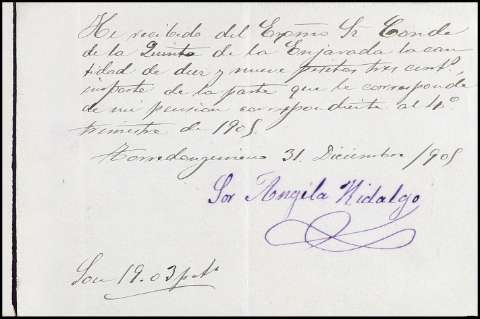 He recibido del Excmo Sr Conde
de la Quinta de la Enjarada la can-
tidad de diez y nueve pesetas tres cent.s
importe de la parte que le corresponde
de mi pension correspondiente al 4º
trimestre de 1905
31 Diciembre /905
Sor Angela Hidalgo
Son 19.03 pts